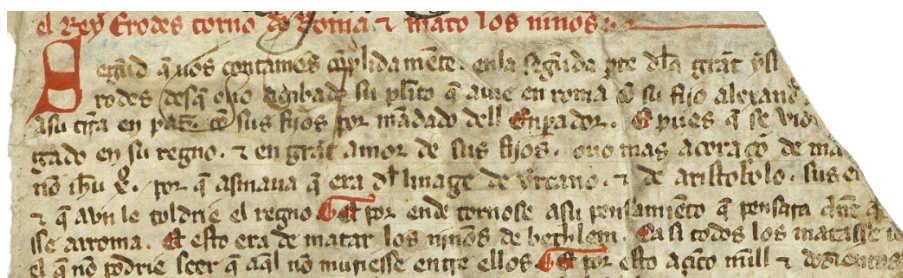 el Rey Erodes torno de Roma ⁊ mato los ninos.
Segũd q̃ uos contamos cũplidamẽte. enla segũda pte dl̃a grãt yst
rodes desq̃ ouo acabado su pleito q̃ auie en roma cõ su fijo alexand
asu tr̃ra en paz. cõ sus fijos por mãdado dell Enpador. E pues q̃ se uio
gado en su regno. ⁊ en grãt amor de sus fijos. ouo mas acoraçõ de ma
nõ ihũ x̃. por q̃ asmaua q̃ era dl̃ linage de yrcano. ⁊ de aristobolo. sus en
⁊ q̃ avn le toldrie el regno Et por ende tornose asu pensamiẽto q̃ pensara
sse arroma. Et esto era de matar los ninos de bethleem. Ca si todos los matasse
el q̃ nõ podrie seer q̃ aq̃l nõ muriesse entre ellos. Et por esto mill ⁊